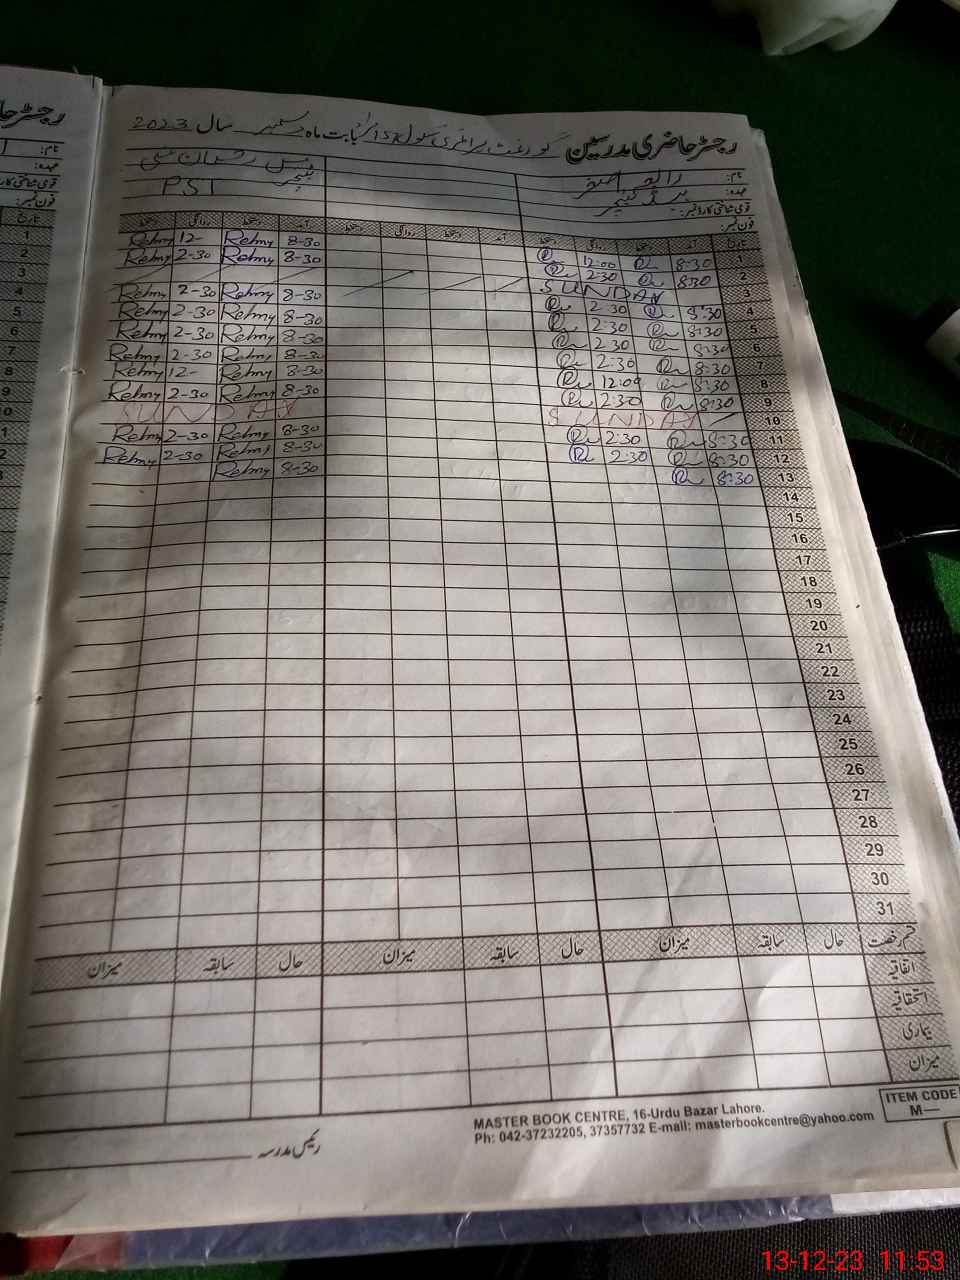 رجسٹر حاضری مدرسین گورنمنٹ پرائمری سکول بابت ماہ دسمبر سال 2023
نام:
عہدہ: ہیڈ ٹیچر
قومی شناختی کارڈ نمبر:
فون نمبر:
PST
تاریخ آمد دستخط روانگی دستخط آمد دستخط روانگی دستخط آمد دستخط روانگی دستخط
1 8:30 12:00 8-30 Rehmy 12- Rehmy
2 8:30 2:30 8-30 Rehmy 2-30 Rehmy
3 SUNDAY
4 8:30 2:30 8-30 Rehmy 2-30 Rehmy
5 8:30 2:30 8-30 Rehmy 2-30 Rehmy
6 8:30 2:30 8-30 Rehmy 2-30 Rehmy
7 8:30 2:30 8-30 Rehmy 2-30 Rehmy
8 8:30 12:00 8-30 Rehmy 12- Rehmy
9 8:30 2:30 8-30 Rehmy 2-30 Rehmy
10 SUNDAY SUNDAY
11 8:30 2:30 8-30 Rehmy 2-30 Rehmy
12 8:30 2:30 8-30 Rehmy 2-30 Rehmy
13 8:30 8-30 Rehmy
14
15
16
17
18
19
20
21
22
23
24
25
26
27
28
29
30
31
قسم رخصت حال سابقہ میزان حال سابقہ میزان حال سابقہ میزان
اتفاقیہ
استحقاقیہ
بیماری
میزان
رئیس مدرسہ
MASTER BOOK CENTRE, 16-Urdu Bazar Lahore.
Ph: 042-37232205, 37357732 E-mail: masterbookcentre@yahoo.com
ITEM CODE
M—
13-12-23 11.53